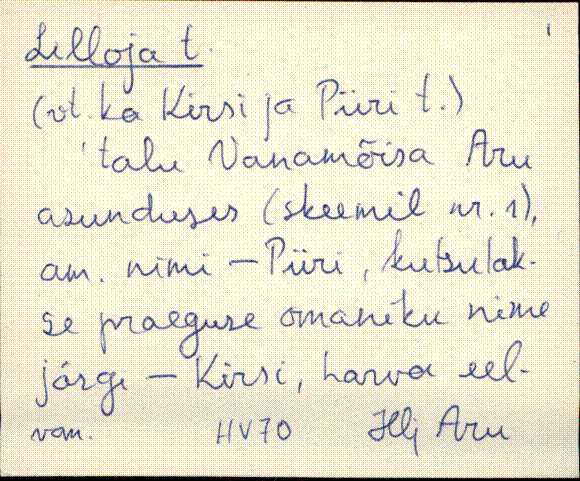 Lilloja t.
(vt. ka Kirsi ja Piiri t.)
'talu Vanamõisa Aru
asunduses (skeemil nr. 1),
am. nimi – Piiri, kutsutak-
se praeguse omaniku nime
järgi – Kirsi, harva eel-
van. HV70 Hlj Aru